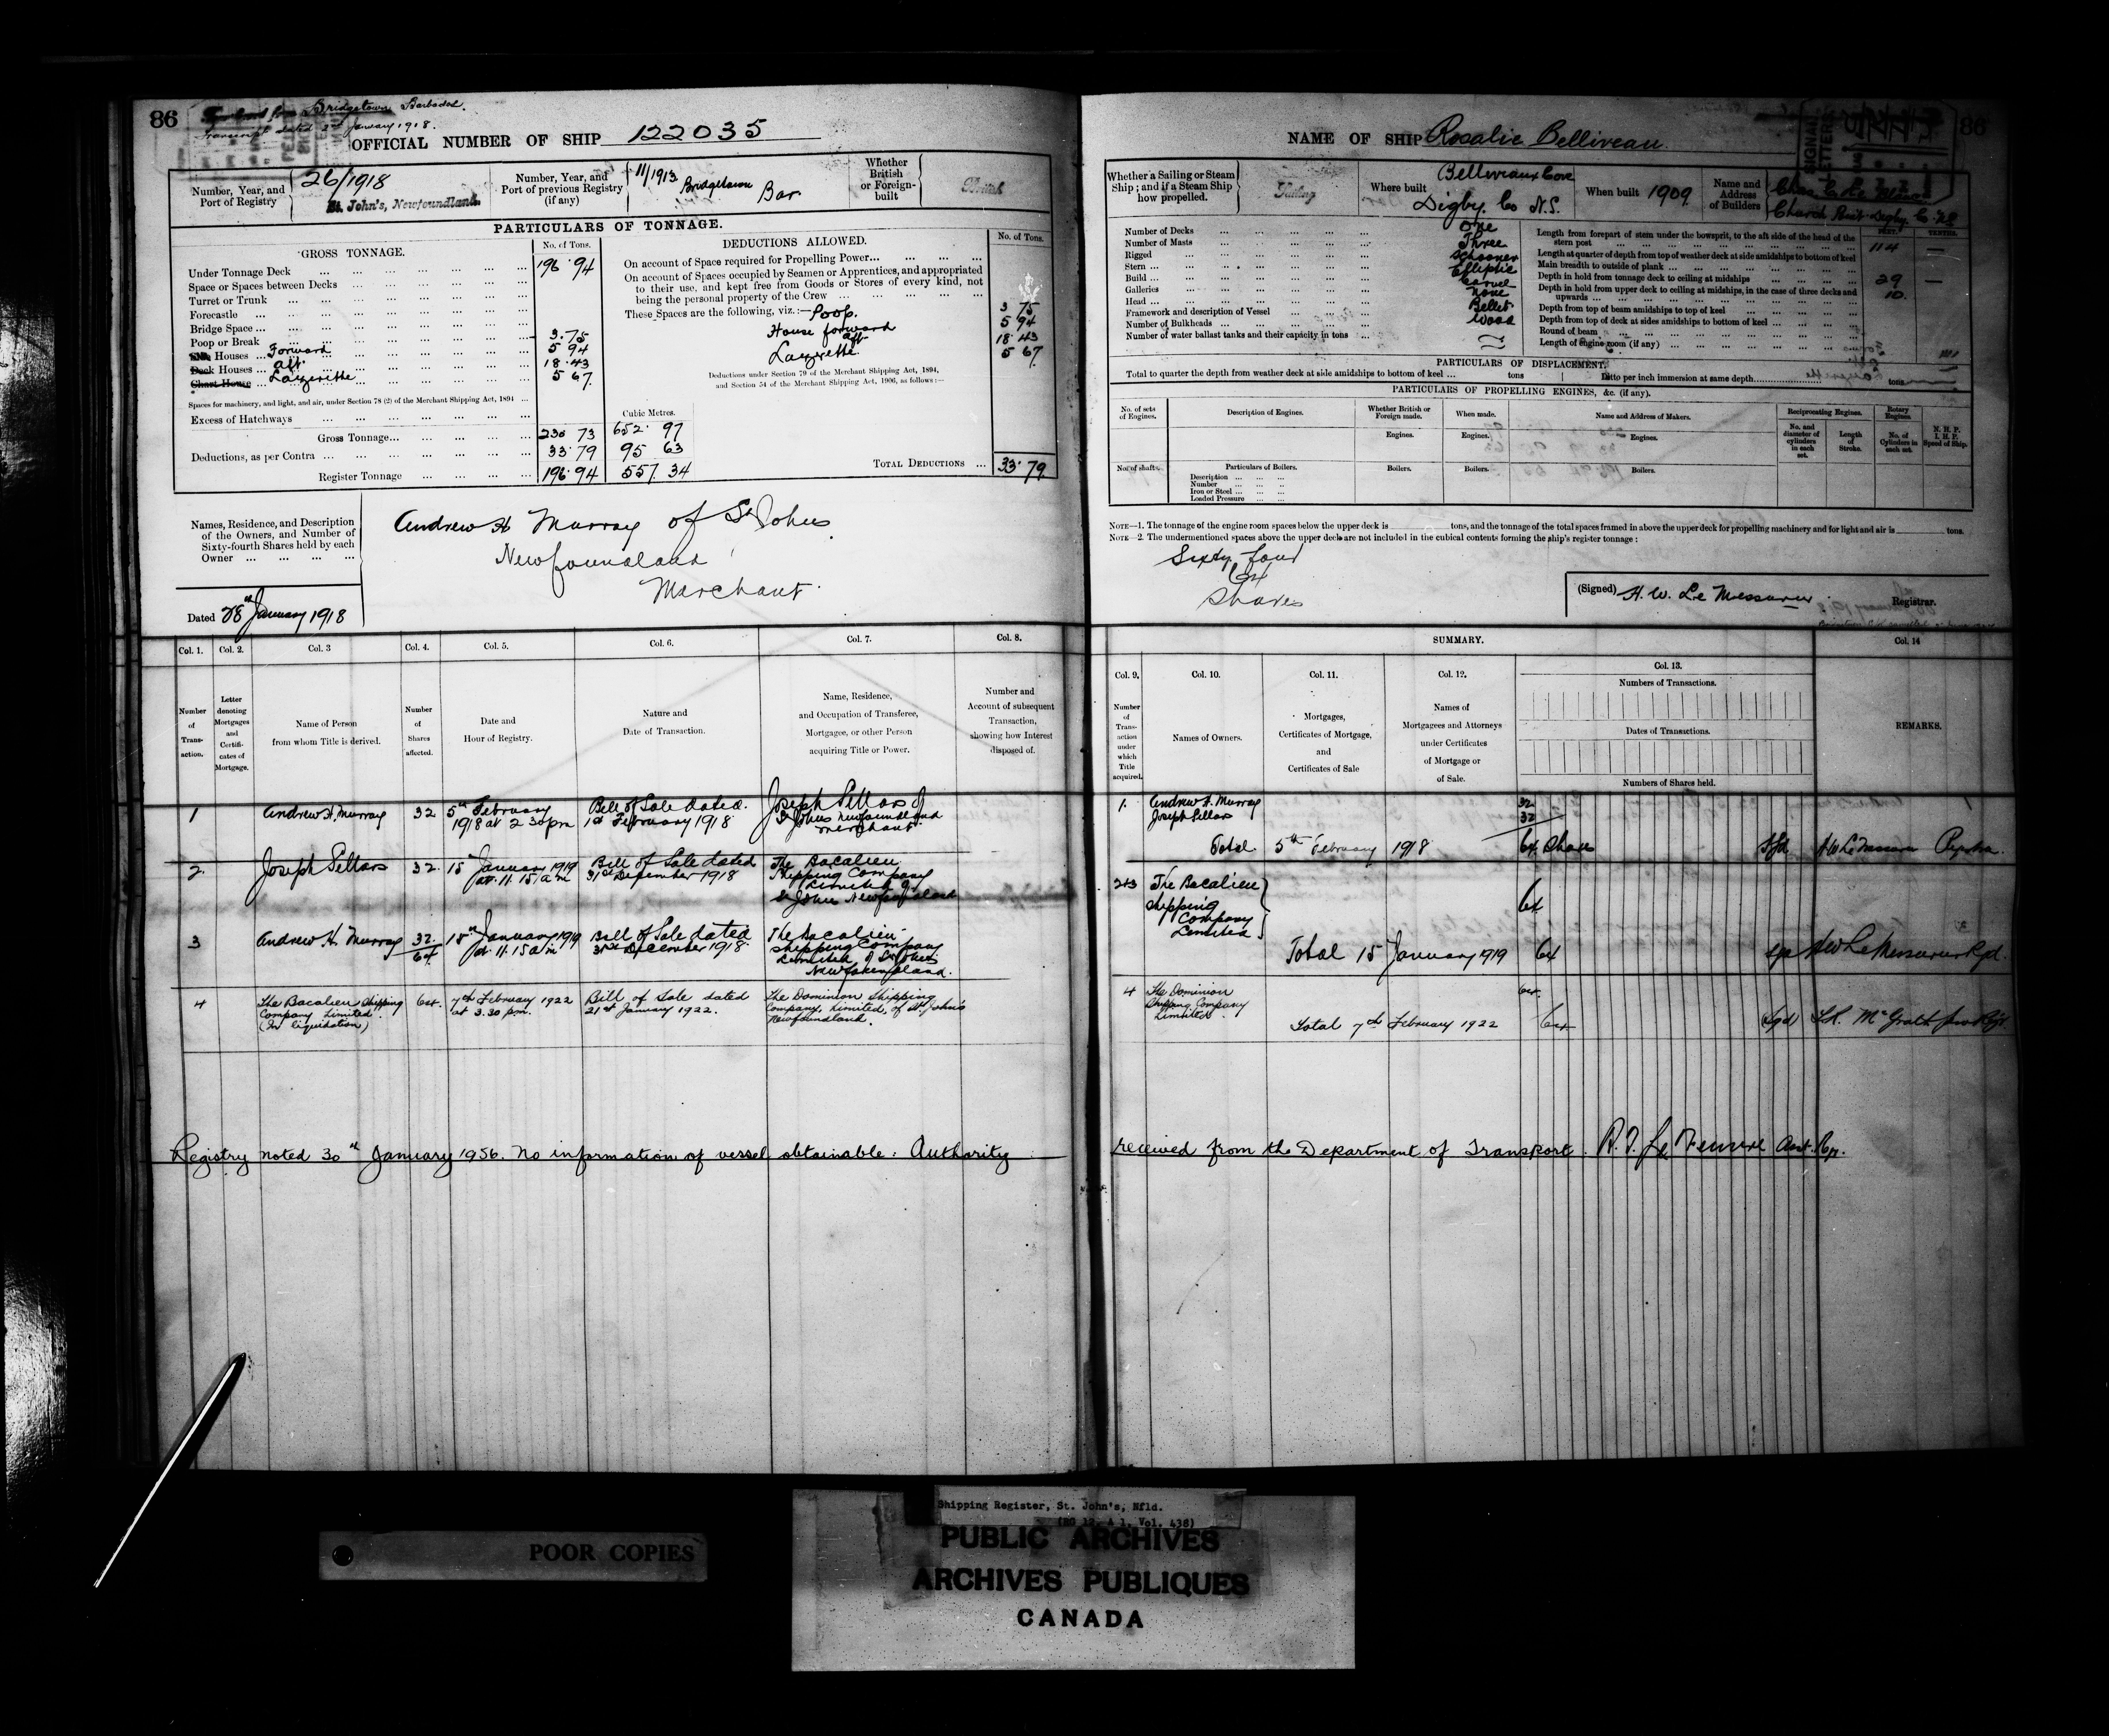 86
Bridgetown Barbados.
Transcript dated 3rd January 1918.
OFFICIAL NUMBER OF SHIP 122035
Number, Year, and Port of Registry
26/1918
St. John's, Newfoundland.
Number, Year, and Port of previous Registry (if any)
11/1913 Bridgetown Bar
Whether British or Foreign-built
British
PARTICULARS OF TONNAGE.
GROSS TONNAGE. No. of Tons.
Under Tonnage Deck 196.94
Space or Spaces between Decks
Turret or Trunk
Forecastle
Bridge Space
Poop or Break 3.75
Houses Forward 5 94
Deck Houses aft 18.43
Chart House Lazerette 5 67
Spaces for machinery, and light, and air, under Section 78 (2) of the Merchant Shipping Act, 1894
Excess of Hatchways
Cubic Metres.
Gross Tonnage 230 73 652. 97
Deductions, as per Contra 33.79 95 63
Register Tonnage 196.94 557. 34
DEDUCTIONS ALLOWED. No. of Tons.
On account of Space required for Propelling Power
On account of Spaces occupied by Seamen or Apprentices, and appropriated
to their use, and kept free from Goods or Stores of every kind, not
being the personal property of the Crew
These Spaces are the following, viz.:— Poop. 3 75
House forward 5 94
aft 18.43
Lazerette 5 67
Deductions under Section 79 of the Merchant Shipping Act, 1894,
and Section 54 of the Merchant Shipping Act, 1906, as follows:—
TOTAL DEDUCTIONS 33.79
Names, Residence, and Description
of the Owners, and Number of
Sixty-fourth Shares held by each
Owner
Andrew H Murray of St Johns
Newfoundland
Merchant.
Dated 28th January 1918
Col. 1. Col. 2. Col. 3 Col. 4. Col. 5. Col. 6. Col. 7. Col. 8.
Number of Transaction.
Letter denoting Mortgages and Certificates of Mortgage.
Name of Person from whom Title is derived.
Number of Shares affected.
Date and Hour of Registry.
Nature and Date of Transaction.
Name, Residence, and Occupation of Transferee, Mortgagee, or other Person acquiring Title or Power.
Number and Account of subsequent Transaction, showing how Interest disposed of.
1 Andrew H. Murray 32 5th February 1918 at 2 30 pm Bill of Sale dated. 1st February 1918 Joseph Sellars of St Johns Newfoundland merchant.
2. Joseph Sellars 32. 15th January 1919 at 11.15 am Bill of Sale dated 31st December 1918 The Bacalieu Shipping Company Limited of St Johns Newfoundland
3 Andrew H. Murray 32 64 15th January 1919 at 11.15 am Bill of Sale dated 31st December 1918 The Bacalieu Shipping Company Limited of St Johns Newfoundland.
4 The Bacalieu Shipping Company Limited. (In liquidation) 64. 7th February 1922 at 3.30 pm. Bill of Sale dated 21st January 1922. The Dominion Shipping Company, Limited, of St. John's Newfoundland.
Registry noted 30th January 1956. No information of vessel obtainable. Authority
86
NAME OF SHIP Rosalie Belliveau
SIGNAL LETTERS
Whether a Sailing or Steam Ship; and if a Steam Ship how propelled.
Sailing
Where built
Belliveaux Cove
Digby. Co N.S.
When built 1909
Name and Address of Builders
Church Point Digby Co. N.S.
Number of Decks One
Number of Masts Three
Rigged Schooner
Stern Elliptic
Build Carvel
Galleries None
Head Billet
Framework and description of Vessel Wood
Number of Bulkheads
Number of water ballast tanks and their capacity in tons
FEET. TENTHS.
Length from forepart of stem under the bowsprit, to the aft side of the head of the stern post 114 —
Length at quarter of depth from top of weather deck at side amidships to bottom of keel
Main breadth to outside of plank 29 —
Depth in hold from tonnage deck to ceiling at midships 10
Depth in hold from upper deck to ceiling at midships, in the case of three decks and upwards
Depth from top of beam amidships to top of keel
Depth from top of deck at sides amidships to bottom of keel
Round of beam
Length of engine room (if any)
PARTICULARS OF DISPLACEMENT.
Total to quarter the depth from weather deck at side amidships to bottom of keel tons Ditto per inch immersion at same depth tons
PARTICULARS OF PROPELLING ENGINES, &c. (if any).
No. of sets of Engines.
Description of Engines.
Whether British or Foreign made.
When made.
Name and Address of Makers.
Reciprocating Engines.
Rotary Engines.
No. and diameter of cylinders in each set.
Length of Stroke.
No. of Cylinders in each set.
N. H. P. I. H. P. Speed of Ship.
Engines. Engines. Engines.
No. of shafts.
Particulars of Boilers.
Boilers. Boilers. Boilers.
Description
Number
Iron or Steel
Loaded Pressure
NOTE—1. The tonnage of the engine room spaces below the upper deck is tons, and the tonnage of the total spaces framed in above the upper deck for propelling machinery and for light and air is tons.
NOTE—2. The undermentioned spaces above the upper deck are not included in the cubical contents forming the ship's register tonnage:
Sixty four
64
Shares
(Signed) H. W. Le Messurier Registrar.
SUMMARY.
Col. 9. Col. 10. Col. 11. Col. 12. Col. 13. Col. 14
Number of Transaction under which Title acquired.
Names of Owners.
Mortgages, Certificates of Mortgage, and Certificates of Sale
Names of Mortgagees and Attorneys under Certificates of Mortgage or of Sale.
Numbers of Transactions.
Dates of Transactions.
Numbers of Shares held.
REMARKS.
1. Andrew H. Murray 32
Joseph Sellars 32
Total 5th February 1918 64 Shares Sgd H W Le Messurier
2+3 The Bacalieu Shipping Company Limited 64
Total 15 January 1919 64 Sgd H W Le Messurier Rgr.
4 The Dominion Shipping Company Limited. 64.
Total 7th February 1922 64 (Sgd)
received from the Department of Transport.
Shipping Register, St. John's, Nfld.
(RG 12, A 1, Vol. 438)
POOR COPIES
PUBLIC ARCHIVES
ARCHIVES PUBLIQUES
CANADA